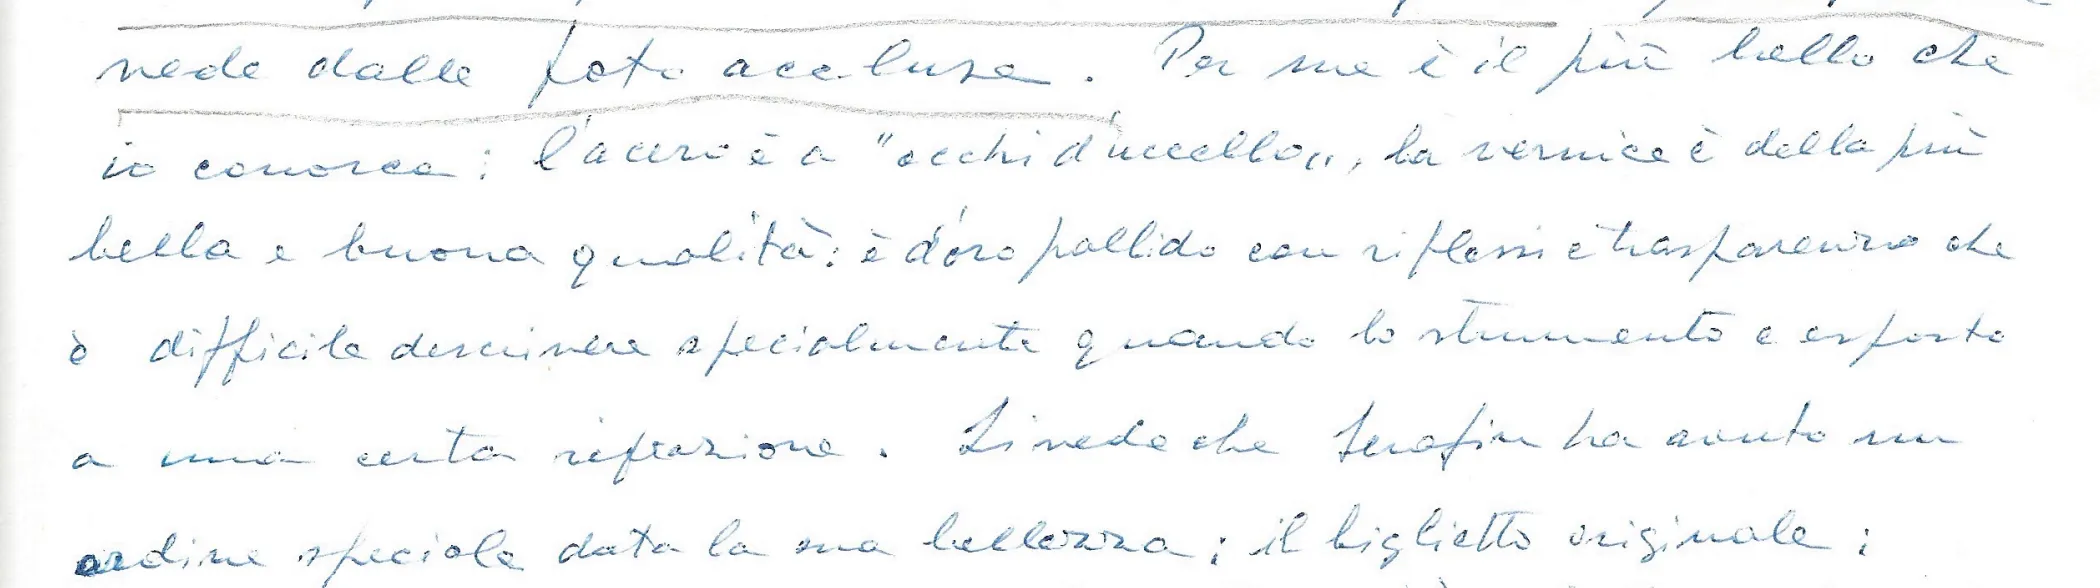 vede dalle foto accluse. Per me è il più bello che
io conosca; l'acero è a "occhi d'uccello", la vernice è della più
bella e buona qualità: è d'oro pallido con riflessi e trasparenza che
è difficile descrivere specialmente quando lo strumento e esposto
a una certa rifrazione. Si vede che Serafin ha avuto un
ordine speciale data la sua bellezza; il biglietto originale;